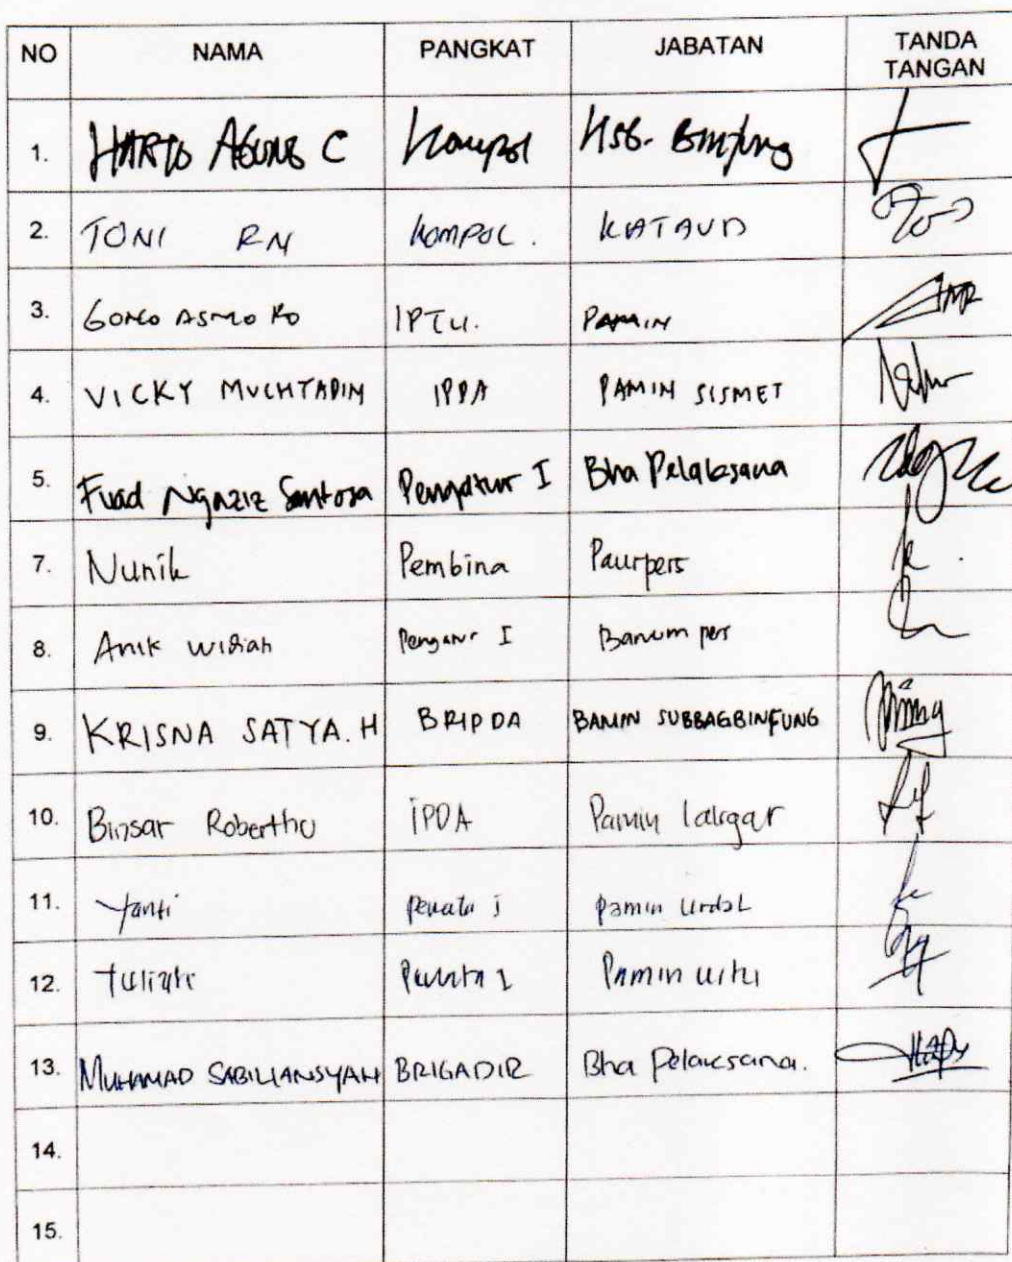 NO NAMA PANGKAT JABATAN TANDA TANGAN
1. HARTO AGUNG C Kompol Binfung
2. TONI RN KOMPOL. KATAUD
3. ASMORO IPTU. PAMIN
4. VICKY MUCHTADIN IPDA PAMIN SISMET
5. Fuad Ngaziz Santosa Pengatur I Bha Pelaksana
7. Nunik Pembina Paurpers
8. Anik Pengatur I Banum pers
9. KRISNA SATYA. H BRIPDA BAMIN SUBBAGBINFUNG
10. Binsar Roberthu IPDA Pamin Lakgar
11. Yanti Penata I Pamin Urdal
12. Yuliati Penata I Pamin urtu
13. MUHAMAD SABILIANSYAH BRIGADIR Bha Pelaksana.
14.
15.